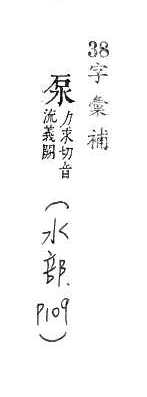 38字彙補
泵
力求切音
流義闕
（水部.P109）